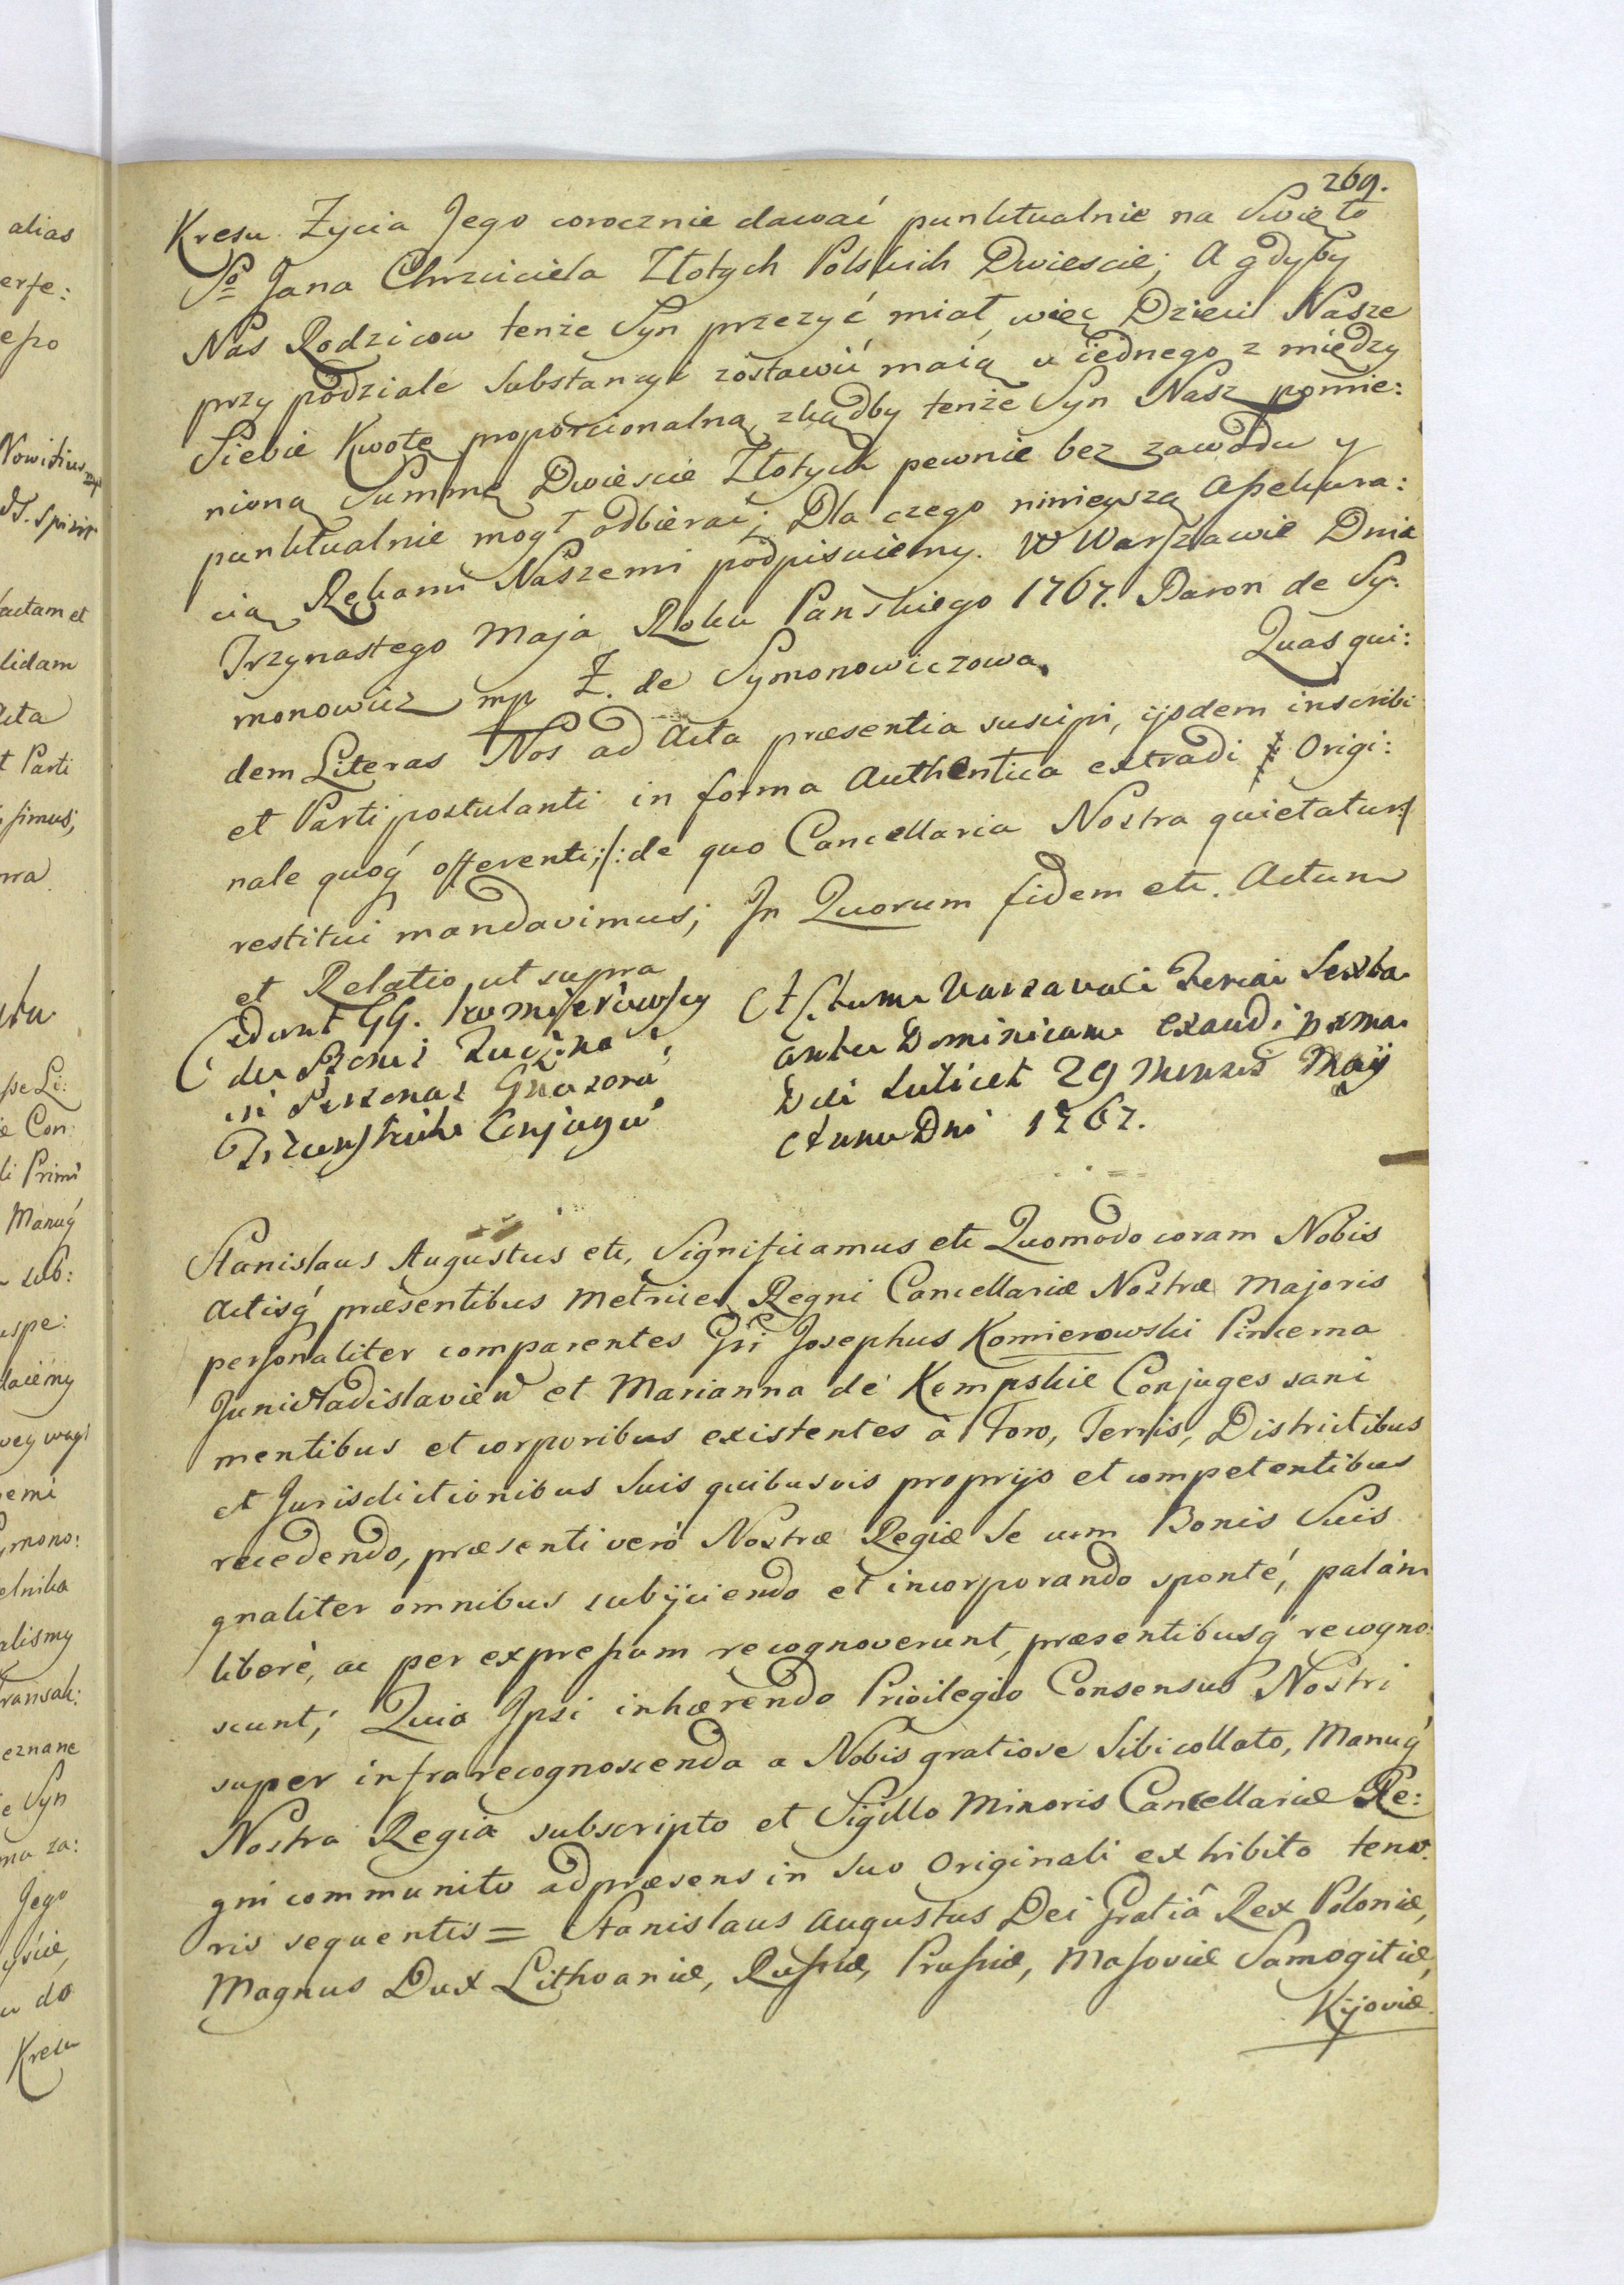 269.
Kresu Życia Jego corocznie dawać punktualnie na Swięto
So Jana Chrzciciela Złotych Polskich Dwieście; A gdyby
Nas Rodzicow tenże Syn przezyć miał, więc Dzieci Nasze
przy podziale Substancyi zostawić maią u iednego z między
Siebie Kwotę proporcionalną zkądby tenże Syn Nasz pomie:
nioną Summę Dwieście Złotych pewnie bez zawodu y
punktualnie mogł odbierać; Dla czego ninieyszą Assekura:
cią Rękami Naszemi podpisuiemy. W Warszawie Dnia
Trzynastego Maja Roku Panskiego 1767. Baron de Sy:
monowicz mp Z. de Symonowiczowa. Quasqui:
dem Literas Nos ad Acta præsentia suscipi, ijsdem inscribi
et Parti postulanti in forma Authentica extradi Origi:
nale quoq́ offerenti, /:de quo Cancellaria Nostra quietatur:/
restitui mandavimus; In Quorum fidem etc. Actum
et Relatio ut supra
Cedunt GG. Komierowscy
de Bonis
in Personas Gnosorũ
Conjugũ
Actum Varsaviæ Feria Sexta
ante Dominicam Exaudi pxma
Die Scilicet 29 Mensis Maij
Anno Dni 1767.
Stanislaus Augustus etc, Significamus etc Quomodo coram Nobis
Actisq́ præsentibus Metrices Regni Cancellariæ Nostræ Majoris
personaliter comparentes Gsi Josephus Komierowski Pincerna
Junivladislavien et Marianna de Kempskie Conjuges sani
mentibus et corporibus existentes à Foro, Terris, Districtibus
et Jurisdictionibus Suis quibusvis proprijs et competentibus
recedendo, præsenti verò Nostræ Regiæ Se cum Bonis Suis
gnaliter omnibus subijciendo et incorporando sponté, palám
liberè, ac per expressum recognoverunt, præsentibusq́ recogno:
scunt; Quia Ipsi inhærendo Privilegio Consensus Nostri
super infrarecognoscenda a Nobis gratiose Sibi collato, Manuq́
Nostra Regia subscripto et Sigillo Minoris Cancellariæ Re:
gni communito adpræsens in Suo Originali exhibito teno:
ris sequentis = Stanislaus Augustus Dei Gratiâ Rex Poloniæ,
Magnus Dux Lithvaniæ, Russiæ, Prussiæ, Masoviæ Samogitiæ,
Kijoviæ